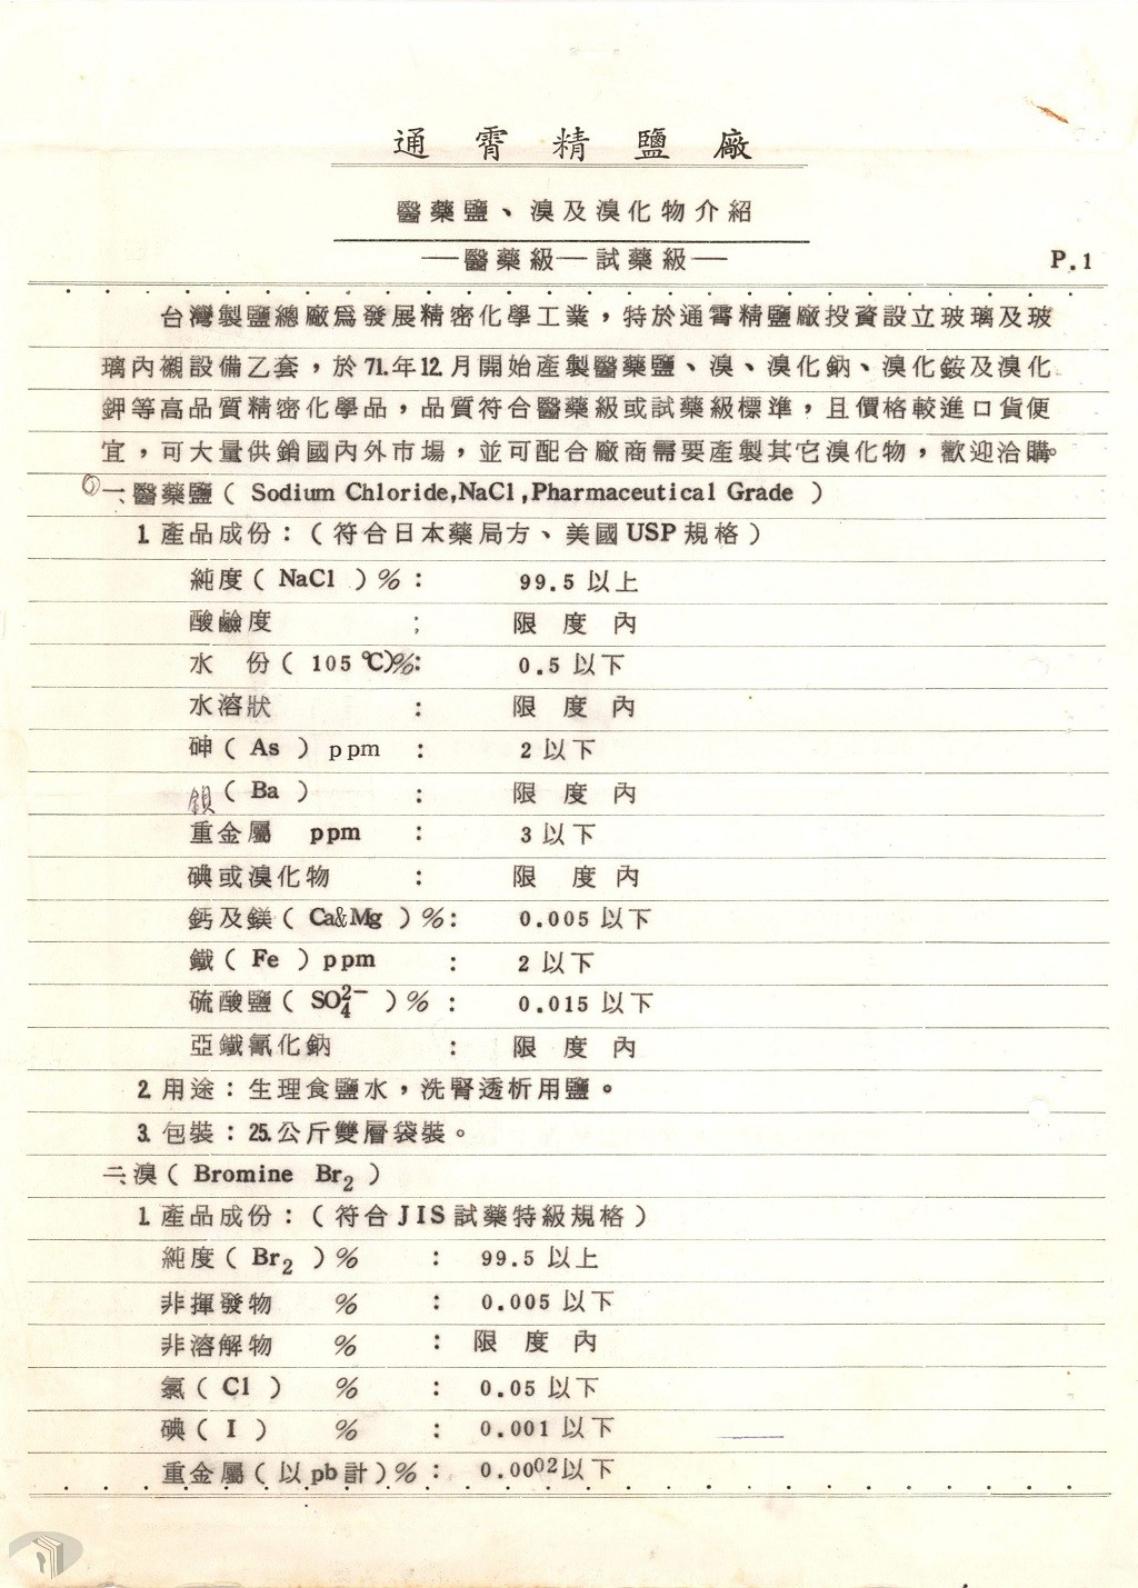 通霄精鹽廠
醫藥鹽、溴及溴化物介紹
—醫藥級—試藥級—
P.1
台灣製鹽總廠爲發展精密化學工業，特於通霄精鹽廠投資設立玻璃及玻
璃內襯設備乙套，於71.年12.月開始產製醫藥鹽、溴、溴化鈉、溴化銨及溴化
鉀等高品質精密化學品，品質符合醫藥級或試藥級標準，且價格較進口貨便
宜，可大量供銷國內外市場，並可配合廠商需要產製其它溴化物，歡迎洽購。
一、醫藥鹽（Sodium Chloride,NaCl,Pharmaceutical Grade）
1.產品成份：（符合日本藥局方、美國USP規格）
純度（NaCl）%： 99.5以上
酸鹼度 ； 限度內
水 份（105℃)%： 0.5以下
水溶狀 ： 限度內
砷（As）ppm ： 2以下
鋇（Ba） ： 限度內
重金屬 ppm ： 3以下
碘或溴化物 ： 限度內
鈣及鎂（Ca&Mg）%： 0.005以下
鐵（Fe）ppm ： 2以下
硫酸鹽（SO₄²⁻）%： 0.015以下
亞鐵氰化鈉 ： 限度內
2.用途：生理食鹽水，洗腎透析用鹽。
3.包裝：25.公斤雙層袋裝。
二、溴（Bromine Br₂）
1.產品成份：（符合JIS試藥特級規格）
純度（Br₂）% ： 99.5以上
非揮發物 % ： 0.005以下
非溶解物 % ： 限度內
氯（Cl） % ： 0.05以下
碘（I） % ： 0.001以下
重金屬（以pb計）%： 0.0002以下